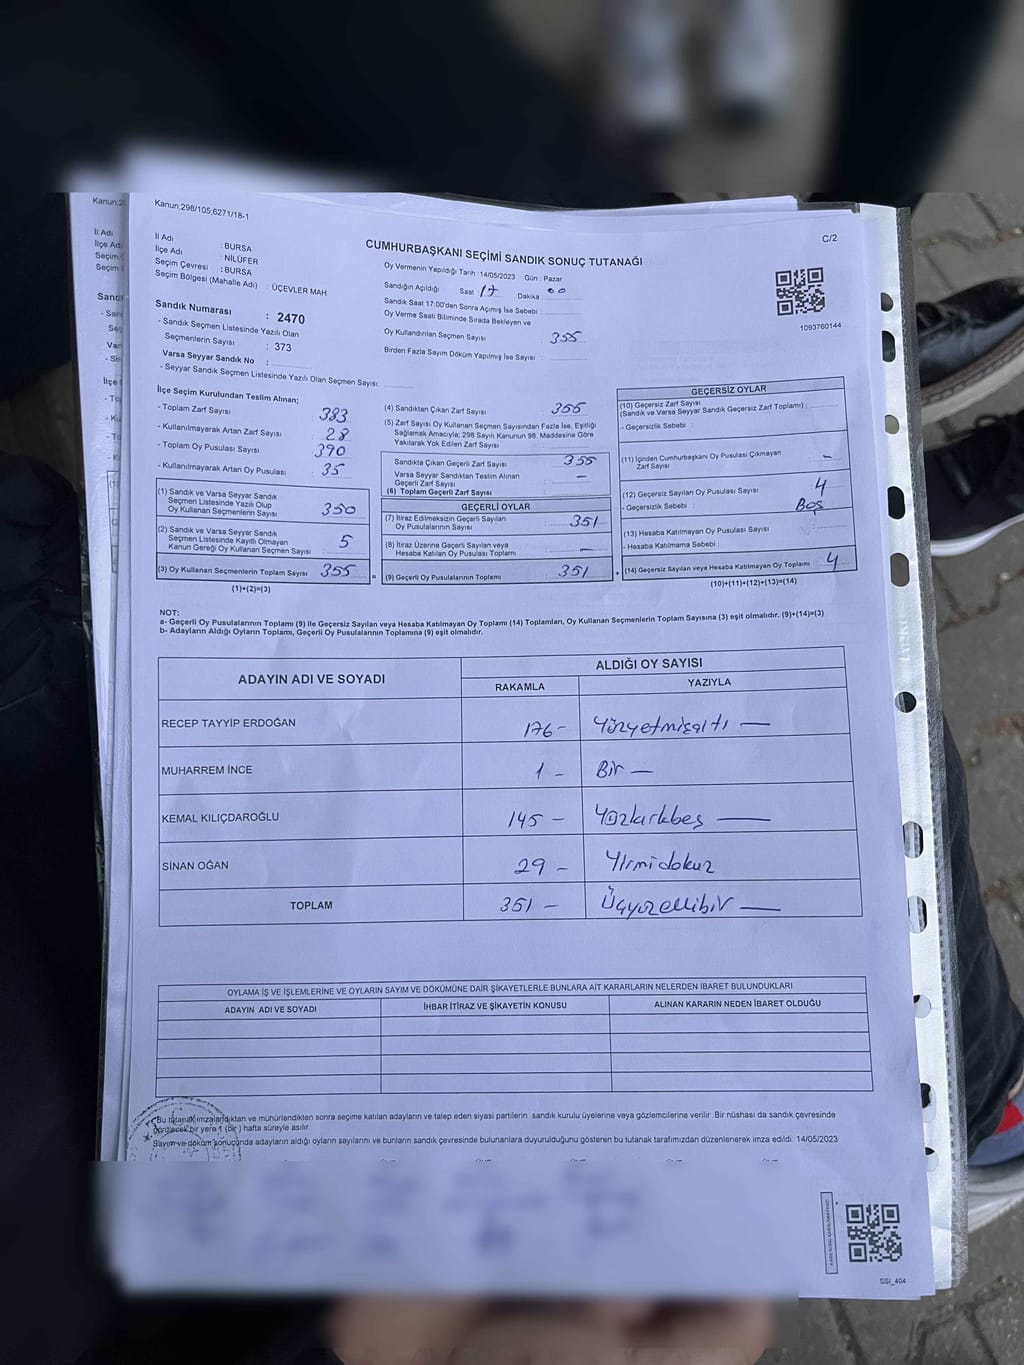 Kanun:298/105,6271/18-1
C/2
İl Adı : BURSA
İlçe Adı : NİLÜFER
Seçim Çevresi : BURSA
Seçim Bölgesi (Mahalle Adı) : ÜÇEVLER MAH
Sandık Numarası : 2470
- Sandık Seçmen Listesinde Yazılı Olan
Seçmenlerin Sayısı : 373
Varsa Seyyar Sandık No :
- Seyyar Sandık Seçmen Listesinde Yazılı Olan Seçmen Sayısı:
CUMHURBAŞKANI SEÇİMİ SANDIK SONUÇ TUTANAĞI
Oy Vermenin Yapıldığı Tarih :14/05/2023 Gün : Pazar
Sandığın Açıldığı Saat : 17 Dakika : 00
Sandık Saat 17:00'den Sonra Açımış İse Sebebi :
Oy Verme Saati Bitiminde Sırada Bekleyen ve
Oy Kullandırılan Seçmen Sayısı : 355
Birden Fazla Sayım Döküm Yapılmış İse Sayısı :
1093760144
İlçe Seçim Kurulundan Teslim Alınan;
- Toplam Zarf Sayısı 383
- Kullanılmayarak Artan Zarf Sayısı 28
- Toplam Oy Pusulası Sayısı 390
- Kullanılmayarak Artan Oy Pusulası 35
(1) Sandık ve Varsa Seyyar Sandık
Seçmen Listesinde Yazılı Olup
Oy Kullanan Seçmenlerin Sayısı 350
(2) Sandık ve Varsa Seyyar Sandık
Seçmen Listesinde Kayıtlı Olmayan
Kanun Gereği Oy Kullanan Seçmen Sayısı 5
(3) Oy Kullanan Seçmenlerin Toplam Sayısı 355 =
(1)+(2)=(3)
(4) Sandıktan Çıkan Zarf Sayısı 355
(5) Zarf Sayısı Oy Kullanan Seçmen Sayısından Fazla İse, Eşitliği
Sağlamak Amacıyla; 298 Sayılı Kanunun 98. Maddesine Göre
Yakılarak Yok Edilen Zarf Sayısı
Sandıkta Çıkan Geçerli Zarf Sayısı 355
Varsa Seyyar Sandıktan Teslim Alınan
Geçerli Zarf Sayısı –
(6) Toplam Geçerli Zarf Sayısı
GEÇERLİ OYLAR
(7) İtiraz Edilmeksizin Geçerli Sayılan
Oy Pusulalarının Sayısı : 351
(8) İtiraz Üzerine Geçerli Sayılan veya
Hesaba Katılan Oy Pusulası Toplamı –
(9) Geçerli Oy Pusulalarının Toplamı 351 +
GEÇERSİZ OYLAR
(10) Geçersiz Zarf Sayısı
(Sandık ve Varsa Seyyar Sandık Geçersiz Zarf Toplamı) :
- Geçersizlik Sebebi :
(11) İçinden Cumhurbaşkanı Oy Pusulası Çıkmayan
Zarf Sayısı –
(12) Geçersiz Sayılan Oy Pusulası Sayısı 4
- Geçersizlik Sebebi : Boş
(13) Hesaba Katılmayan Oy Pusulası Sayısı
- Hesaba Katılmama Sebebi :
(14) Geçersiz Sayılan veya Hesaba Katılmayan Oy Toplamı : 4
(10)+(11)+(12)+(13)=(14)
NOT:
a- Geçerli Oy Pusulalarının Toplamı (9) ile Geçersiz Sayılan veya Hesaba Katılmayan Oy Toplamı (14) Toplamları, Oy Kullanan Seçmenlerin Toplam Sayısına (3) eşit olmalıdır. (9)+(14)=(3)
b- Adayların Aldığı Oyların Toplamı, Geçerli Oy Pusulalarının Toplamına (9) eşit olmalıdır.
ADAYIN ADI VE SOYADI
ALDIĞI OY SAYISI
RAKAMLA YAZIYLA
RECEP TAYYİP ERDOĞAN 176– Yüzyetmişaltı —
MUHARREM İNCE 1 – Bir —
KEMAL KILIÇDAROĞLU 145 – Yüzkırkbeş —
SİNAN OĞAN 29 – Yirmidokuz
TOPLAM 351 – Üçyüzellibir —
OYLAMA İŞ VE İŞLEMLERİNE VE OYLARIN SAYIM VE DÖKÜMÜNE DAİR ŞİKAYETLERLE BUNLARA AİT KARARLARIN NELERDEN İBARET BULUNDUKLARI
ADAYIN ADI VE SOYADI İHBAR İTİRAZ VE ŞİKAYETİN KONUSU ALINAN KARARIN NEDEN İBARET OLDUĞU
Bu tutanak imzalandıktan ve mühürlendikten sonra seçime katılan adayların ve talep eden siyasi partilerin sandık kurulu üyelerine veya gözlemcilerine verilir. Bir nüshası da sandık çevresinde
görülecek bir yere 1 (bir) hafta süreyle asılır.
Sayım ve döküm sonucunda adayların aldığı oyların sayılarını ve bunların sandık çevresinde bulunanlara duyurulduğunu gösteren bu tutanak tarafımızdan düzenlenerek imza edildi. 14/05/2023
SSI_404